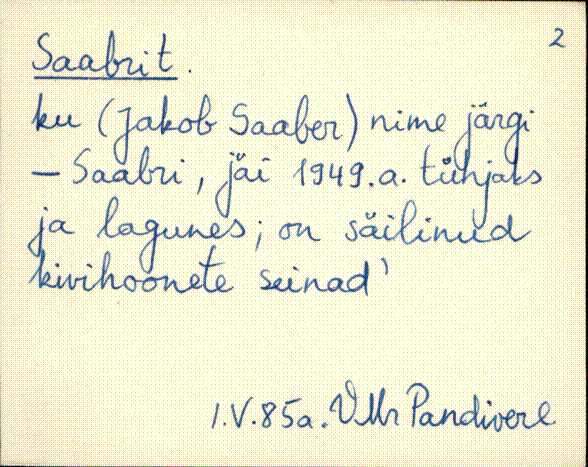 2
Saabrit.
ku (Jakob Saaber) nime järgi
– Saabri, jäi 1949.a. tühjaks
ja lagunes; on säilinud
kivihoonete seinad'
1.V.85a. VMr Pandivere